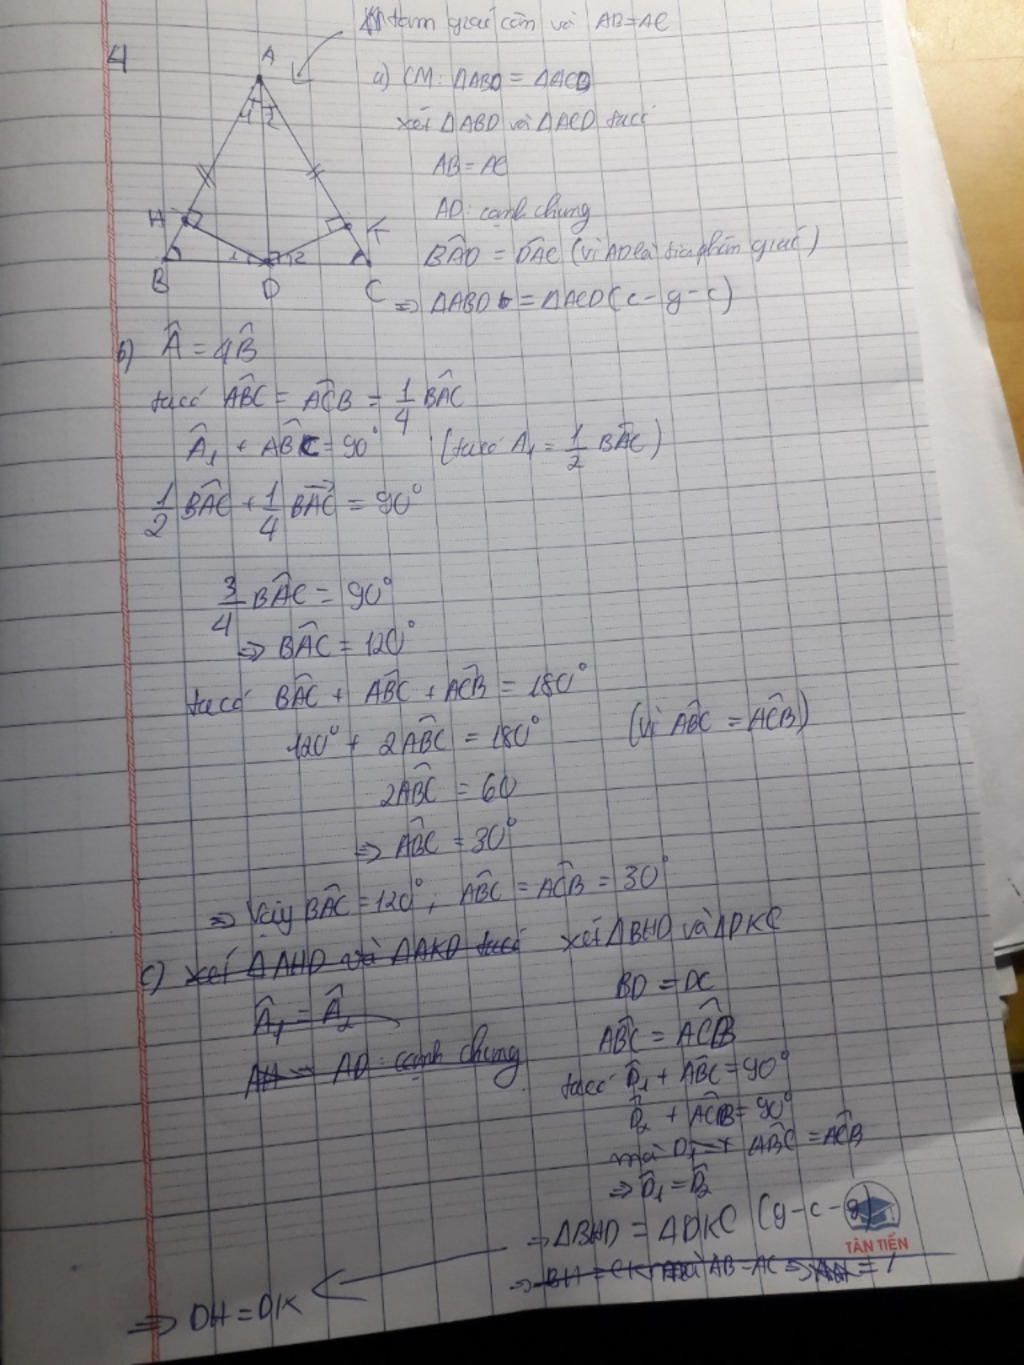 tam giác cân và AB=AC
4
A
1 2
H
K
B
1 2
D
C
a) CM: ΔABD = ΔACD
xét ΔABD và ΔACD ta có
AB = AC
AD: cạnh chung
BÂD = DÂC (vì AD là tia phân giác)
=> ΔABD = ΔACD (c-g-c)
b) Â = 4B̂
ta có AB̂C = AĈB = 1/4 BÂC
Â₁ + AB̂C = 90° (ta có A₁ = 1/2 BÂC)
1/2 BÂC + 1/4 BÂC = 90°
3/4 BÂC = 90°
=> BÂC = 120°
ta có BÂC + AB̂C + AĈB = 180°
120° + 2AB̂C = 180° (vì AB̂C = AĈB)
2AB̂C = 60
=> AB̂C = 30°
=> Vậy BÂC = 120°; AB̂C = AĈB = 30°
c) xét ΔAHD và ΔAKD ta có
Â₁ = Â₂
AH = AD: cạnh chung
xét ΔBHD và ΔDKC
BD = DC
AB̂C = AĈB
ta có D̂₁ + AB̂C = 90°
D̂₂ + AĈB = 90°
mà AB̂C = AĈB
=> D̂₁ = D̂₂
=> ΔBHD = ΔDKC (g-c-g)
TÂN TIẾN
=> BH = CK mà AB = AC =>
=> DH = DK